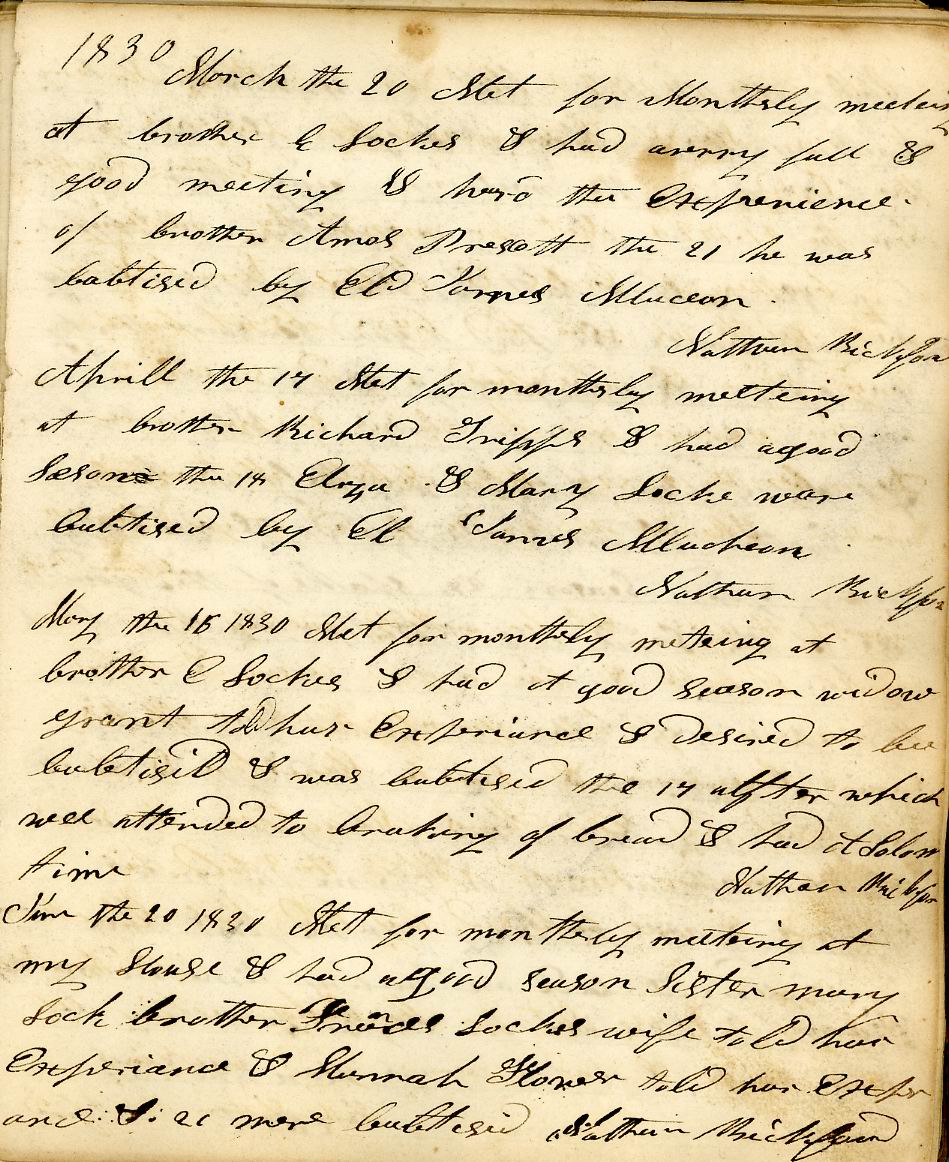 1830
March the 20 Met for Monthely meeteing
at brother E Lockes & had avery full &
good meeting & herd the Experience
of brother Amos Prescott the 21 he was
babtised by Eld James
Nathan Bickford
Aprill the 17 Met for monthely metteing
at brother Richard Tripps & had agood
Seson the 18 & Mary Locke ware
babtised by El James
Nathan Bickford
May the 16 1830 Met for monthely meteing at
brother E Lockes & had A good Season widow
grant told har Experiance & desired to be
babtisid & was babtised the 17 alfter which
wee attended to braking of bread & had A Solom
time
Nathan Bickford
June the 20 1830 Mett for monthely meeteing at
my House & had agood season Sister mary
Lock brother Lockes wife told har
Experiance & Hannah told har Exper
ance & 21 were babtisid Nathan Bickford